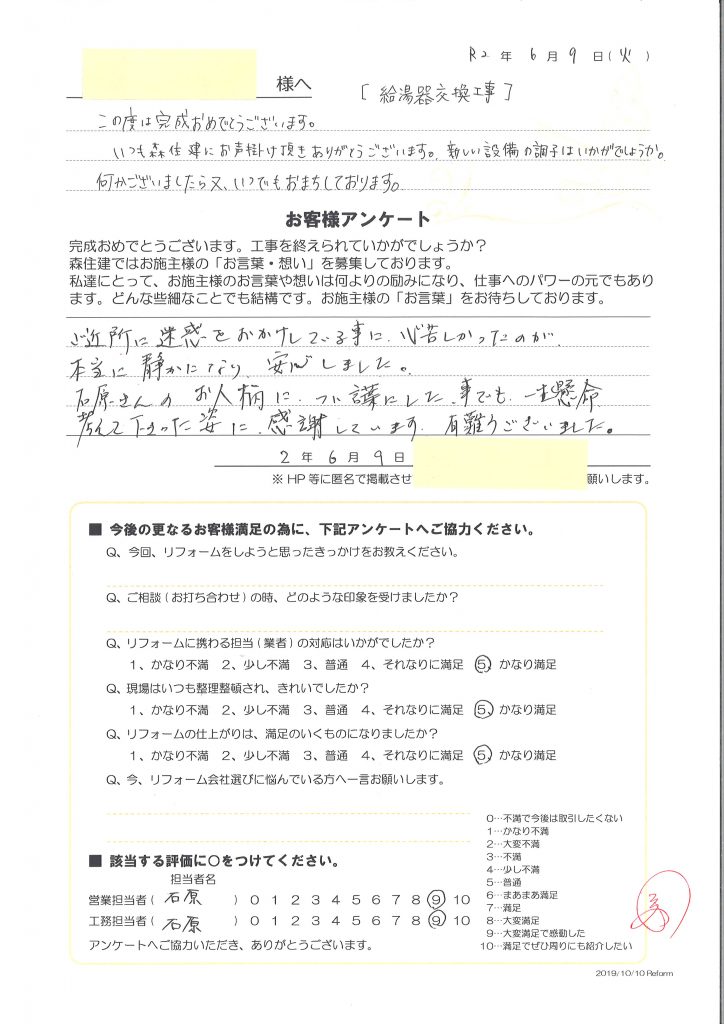 R2 年 6 月 9 日(火)
様へ
[ 給湯器交換工事 ]
この度は完成おめでとうございます。
いつも森住建にお声掛け頂きありがとうございます。新しい設備の調子はいかがでしょうか。
何かございましたら又、いつでもおまちしております。
お客様アンケート
完成おめでとうございます。工事を終えられていかがでしょうか？
森住建ではお施主様の「お言葉・想い」を募集しております。
私達にとって、お施主様のお言葉や想いは何よりの励みになり、仕事へのパワーの元でもあり
ます。どんな些細なことでも結構です。お施主様の「お言葉」をお待ちしております。
ご近所に迷惑をおかけしている事に、心苦しかったのが、
本当に静かになり、安心しました。
石原さんのお人柄に、つい謙にした事でも、一生懸命
考えて下さった姿に、感謝しています。有難うございました。
2 年 6 月 9 日
※ HP 等に匿名で掲載させ
願いします。
■ 今後の更なるお客様満足の為に、下記アンケートへご協力ください。
Q、今回、リフォームをしようと思ったきっかけをお教えください。
Q、ご相談 ( お打ち合わせ ) の時、どのような印象を受けましたか？
Q、リフォームに携わる担当 ( 業者 ) の対応はいかがでしたか？
1、かなり不満 2、少し不満 3、普通 4、それなりに満足 5、かなり満足
Q、現場はいつも整理整頓され、きれいでしたか？
1、かなり不満 2、少し不満 3、普通 4、それなりに満足 5、かなり満足
Q、リフォームの仕上がりは、満足のいくものになりましたか？
1、かなり不満 2、少し不満 3、普通 4、それなりに満足 5、かなり満足
Q、今、リフォーム会社選びに悩んでいる方へ一言お願いします。
0…不満で今後は取引したくない
1…かなり不満
2…大変不満
3…不満
4…少し不満
5…普通
6…まあまあ満足
7…満足
8…大変満足
9…大変満足で感動した
10…満足でぜひ周りにも紹介したい
■ 該当する評価に〇をつけてください。
担当者名
営業担当者 ( 石原 ) 0 1 2 3 4 5 6 7 8 9 10
工務担当者 ( 石原 ) 0 1 2 3 4 5 6 7 8 9 10
アンケートへご協力いただき、ありがとうございます。
2019/10/10 Reform